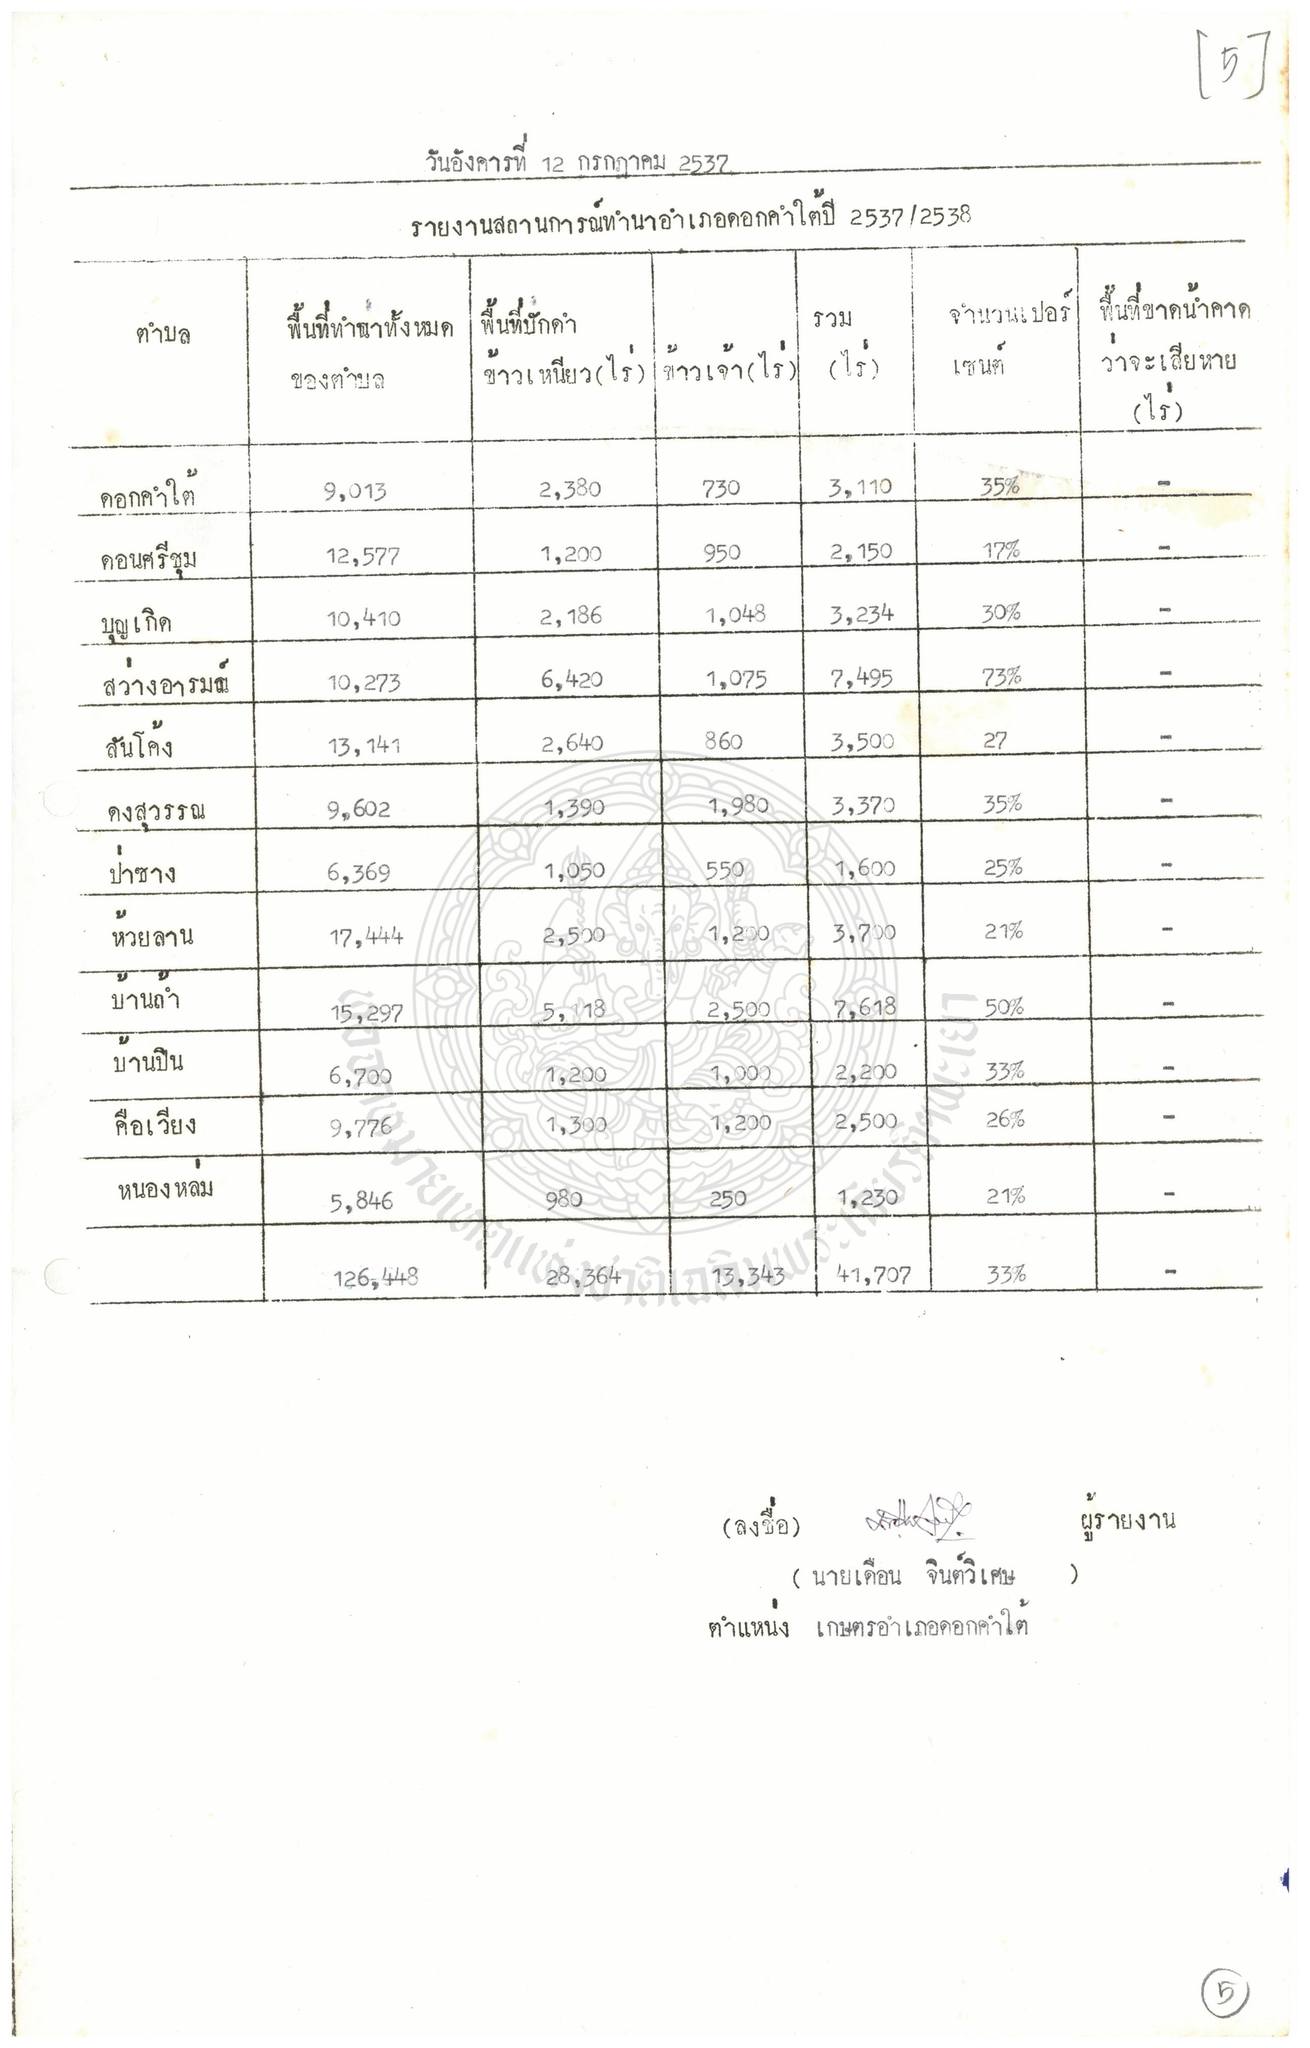 [5]
วันอังคารที่ 12 กรกฎาคม 2537
รายงานสถานการณ์ทำนาอำเภอดอกคำใต้ปี 2537/2538
ตำบล | พื้นที่ทำนาทั้งหมดของตำบล | พื้นที่ปักดำข้าวเหนียว(ไร่) | ข้าวเจ้า(ไร่) | รวม (ไร่) | จำนวนเปอร์เซนต์ | พื้นที่ขาดน้ำคาดว่าจะเสียหาย (ไร่)
ดอกคำใต้ 9,013 2,380 730 3,110 35% -
ดอนศรีชุม 12,577 1,200 950 2,150 17% -
บุญเกิด 10,410 2,186 1,048 3,234 30% -
สว่างอารมณ์ 10,273 6,420 1,075 7,495 73% -
สันโค้ง 13,141 2,640 860 3,500 27 -
ดงสุวรรณ 9,602 1,390 1,980 3,370 35% -
ป่าซาง 6,369 1,050 550 1,600 25% -
ห้วยลาน 17,444 2,500 1,200 3,700 21% -
บ้านถ้ำ 15,297 5,118 2,500 7,618 50% -
บ้านปิน 6,700 1,200 1,000 2,200 33% -
คือเวียง 9,776 1,300 1,200 2,500 26% -
หนองหล่ม 5,846 980 250 1,230 21% -
126,448 28,364 13,343 41,707 33% -
หอจดหมายเหตุแห่งชาติเฉลิมพระเกียรติฯ พะเยา
(ลงชื่อ) ผู้รายงาน
( นายเดือน จินต์วิเศษ )
ตำแหน่ง เกษตรอำเภอดอกคำใต้
5